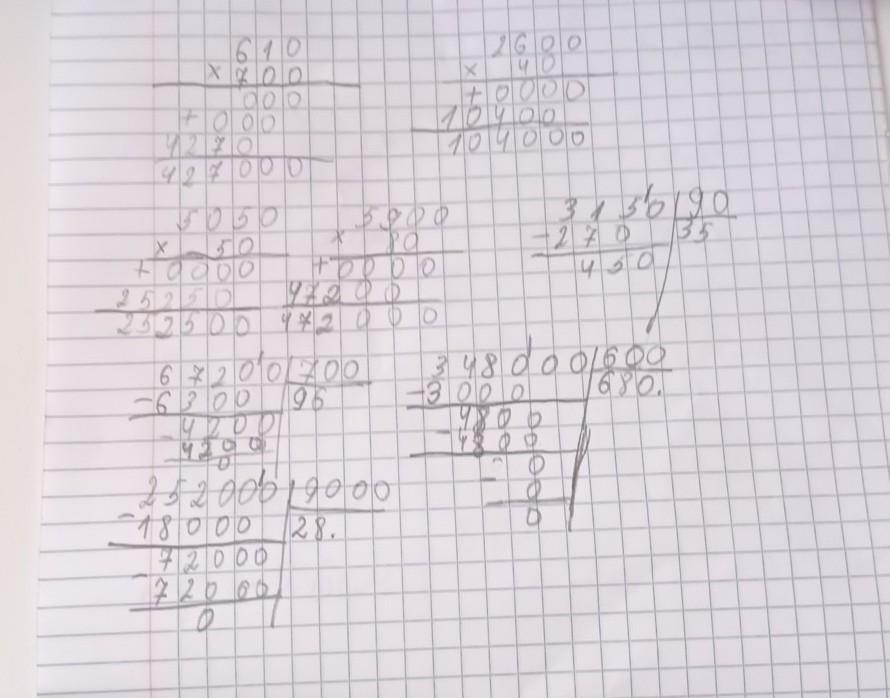 610
× 700
000
+ 000
4270
427000
2600
× 40
+ 0000
10400
104000
5050
× 50
+ 0000
25250
252500
5900
× 80
+ 0000
47200
472000
3150 90
- 270 35
450
67200 700
- 6300 96
4200
- 4200
0
348000 600
- 3000 680.
4800
- 4800
0
- 0
0
252000 9000
- 18000 28.
72000
- 72000
0